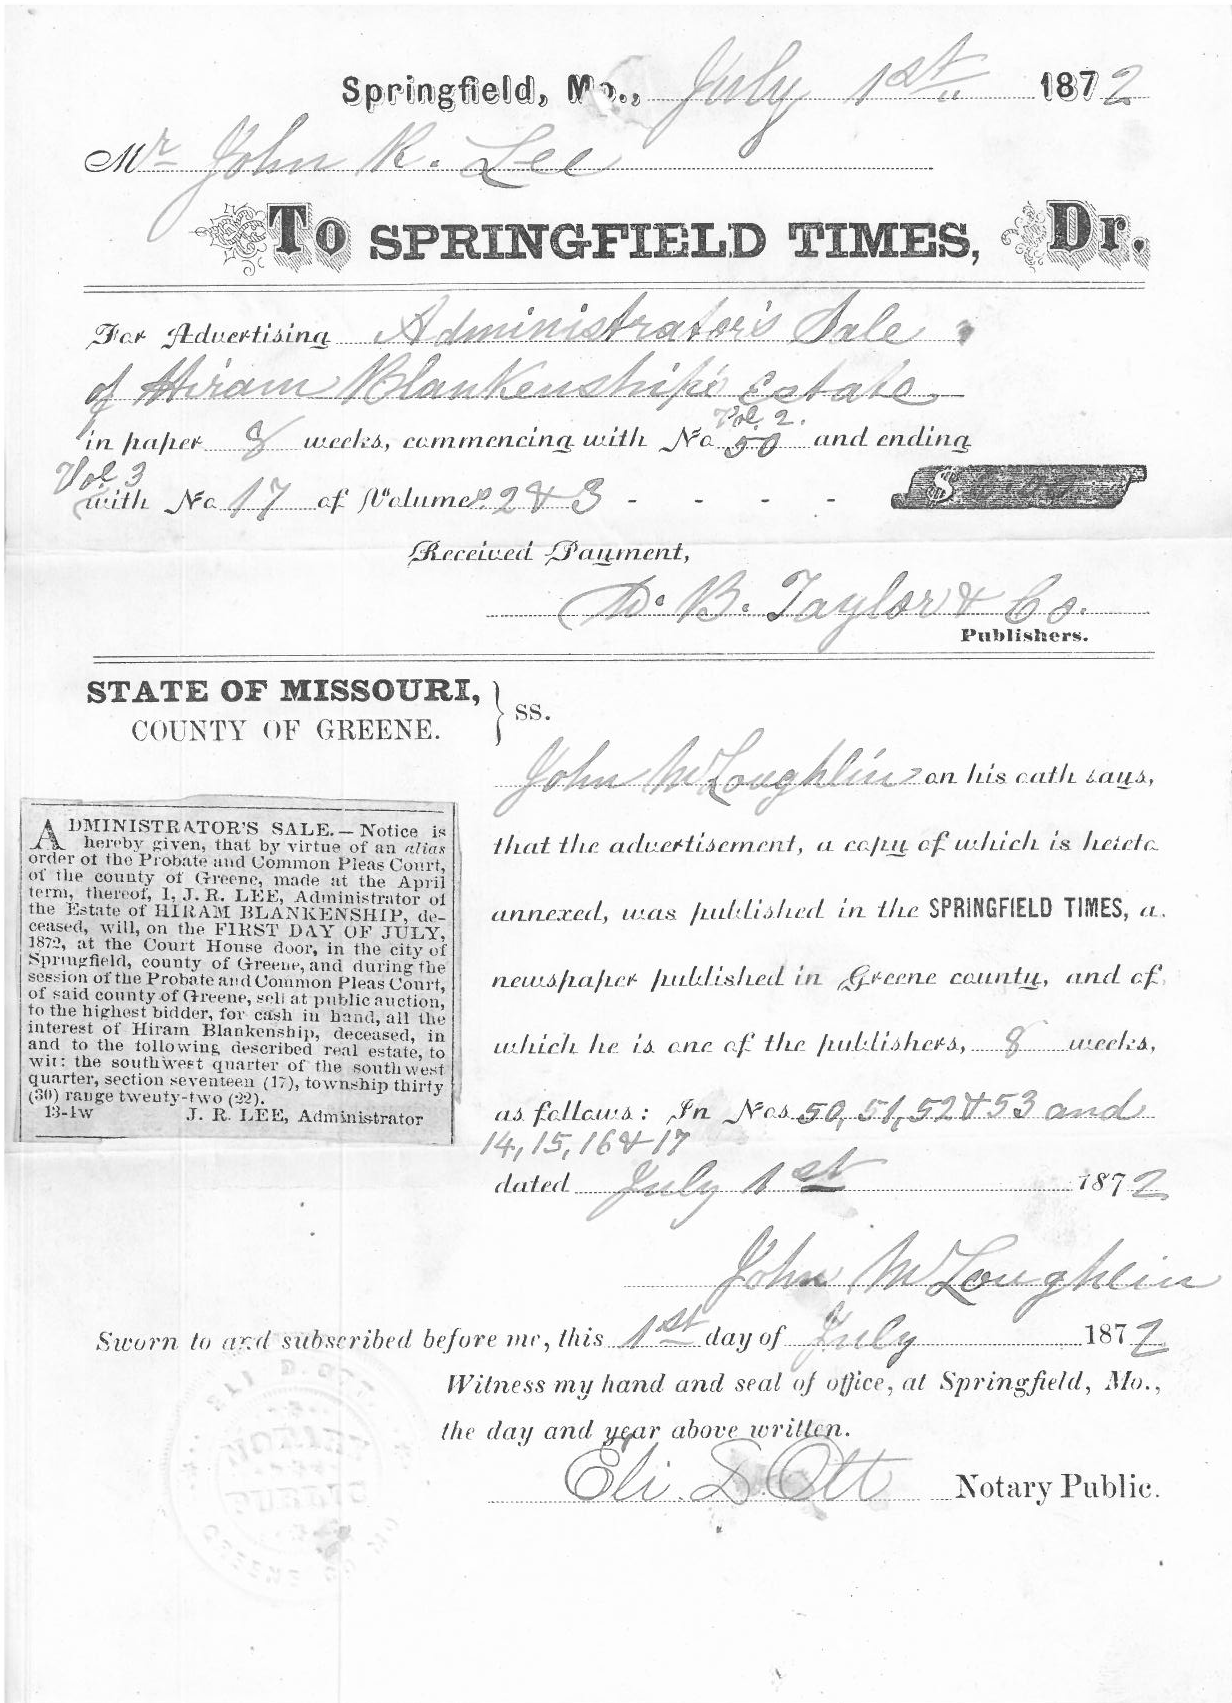 Springfield, Mo., July 1st 1872
Mr John R. Lee
To SPRINGFIELD TIMES, Dr.
For Advertising Administrator's Sale
of Hiram Blankenship's Estate
Vol. 2.
in paper 8 weeks, commencing with No 50 and ending
Vol 3
with No 17 of Volume 2 & 3 - - - - $
Received Payment,
D. B. Taylor & Co.
Publishers.
STATE OF MISSOURI,
COUNTY OF GREENE. } ss.
John McLoughlin on his oath says,
that the advertisement, a copy of which is hereto
annexed, was published in the SPRINGFIELD TIMES, a
newspaper published in Greene county, and of
which he is one of the publishers, 8 weeks,
as follows: In Nos 50, 51, 52 & 53 and
14, 15, 16 & 17
dated July 1st 1872
John McLoughlin
ADMINISTRATOR'S SALE.—Notice is
hereby given, that by virtue of an alias
order of the Probate and Common Pleas Court,
of the county of Greene, made at the April
term, thereof, I, J. R. LEE, Administrator of
the Estate of HIRAM BLANKENSHIP, de-
ceased, will, on the FIRST DAY OF JULY,
1872, at the Court House door, in the city of
Springfield, county of Greene, and during the
session of the Probate and Common Pleas Court,
of said county of Greene, sell at public auction,
to the highest bidder, for cash in hand, all the
interest of Hiram Blankenship, deceased, in
and to the following described real estate, to
wit: the southwest quarter of the southwest
quarter, section seventeen (17), township thirty
(30) range twenty-two (22).
13-4w J. R. LEE, Administrator
Sworn to and subscribed before me, this 1st day of July 1872
Witness my hand and seal of office, at Springfield, Mo.,
the day and year above written.
Eli D Ott Notary Public.
ELI D. OTT
NOTARY
PUBLIC
GREENE CO MO